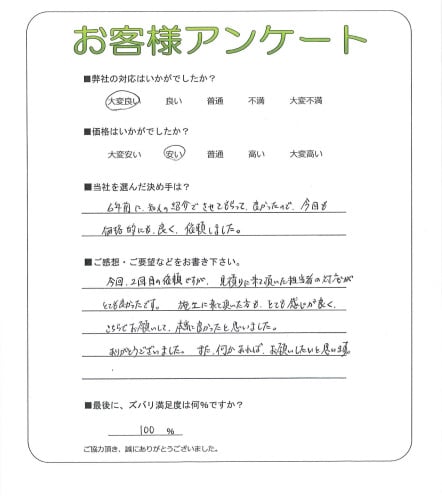 お客様アンケート
■弊社の対応はいかがでしたか？
大変良い 良い 普通 不満 大変不満
■価格はいかがでしたか？
大変安い 安い 普通 高い 大変高い
■当社を選んだ決め手は？
6年前に、知人の紹介でさせてもらって、良かったので、今回も
価格的にも、良く、依頼しました。
■ご感想・ご要望などをお書き下さい。
今回、2回目の依頼ですが、見積りに来て頂いた担当者の対応が
とても良かったです。 施工に来て頂いた方も、とても感じが良く、
こちらでお願いして、本当に良かったと思いました。
ありがとうございました。 また、何かあれば、お願いしたいと思います。
■最後に、ズバリ満足度は何%ですか？
100 %
ご協力頂き、誠にありがとうございました。